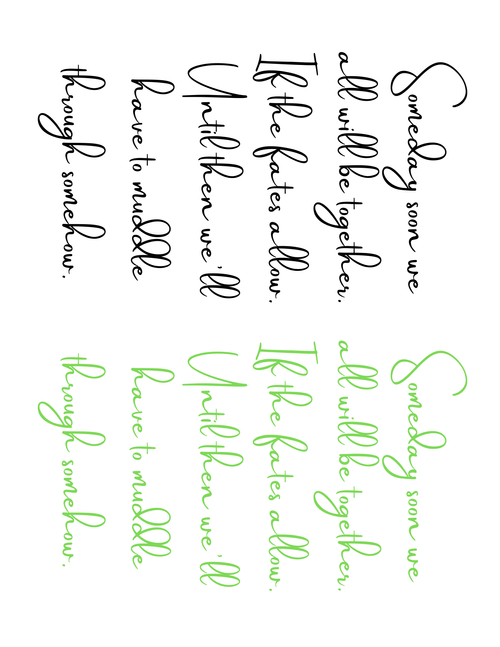 Someday soon we
all will be together.
If the fates allow.
Until then we'll
have to muddle
through somehow.
Someday soon we
all will be together.
If the fates allow.
Until then we'll
have to muddle
through somehow.